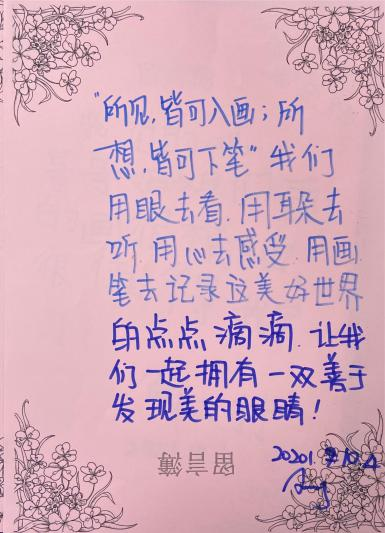 “所见,皆可入画;所
想,皆可下笔”我们
用眼去看.用耳朵去
听.用心去感受.用画
笔去记录这美好世界
的点点滴滴.让我
们一起拥有一双善于
发现美的眼睛!
留言簿